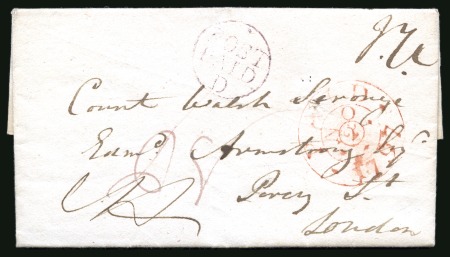 POST
PAID
D
Count Walsh Seronge
Edmd. Armstrong Esqr.
Percy St
London